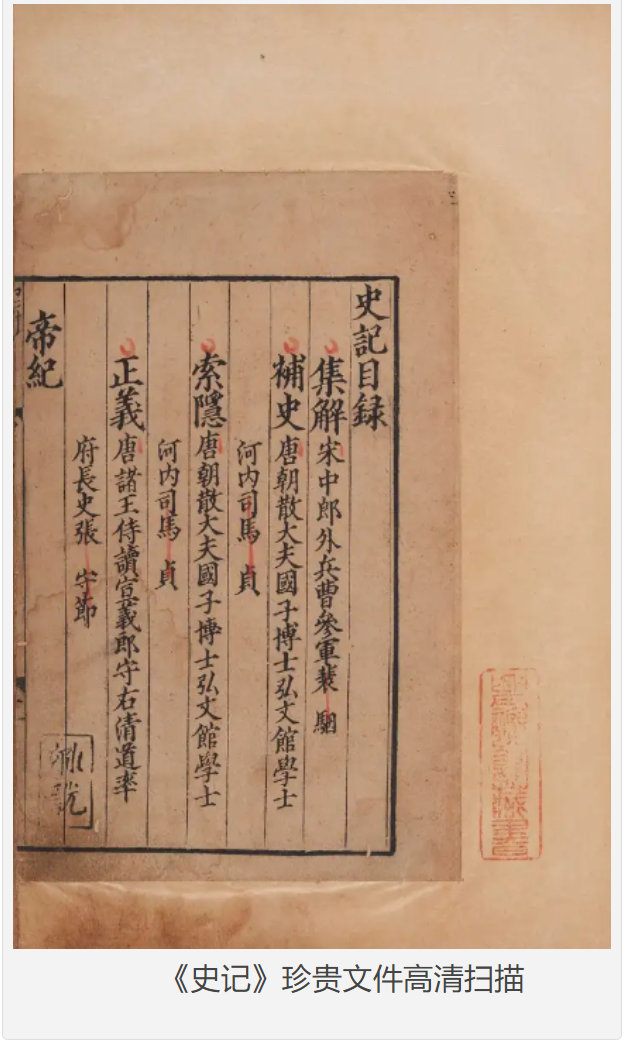 史記目録
集解宋中郎外兵曹參軍裴駰
補史唐朝散大夫國子博士弘文館學士
河内司馬貞
索隱唐朝散大夫國子博士弘文館學士
河内司馬貞
正義唐諸王侍讀宣義郎守右清道率
府長史張守節
帝紀
《史记》珍贵文件高清扫描